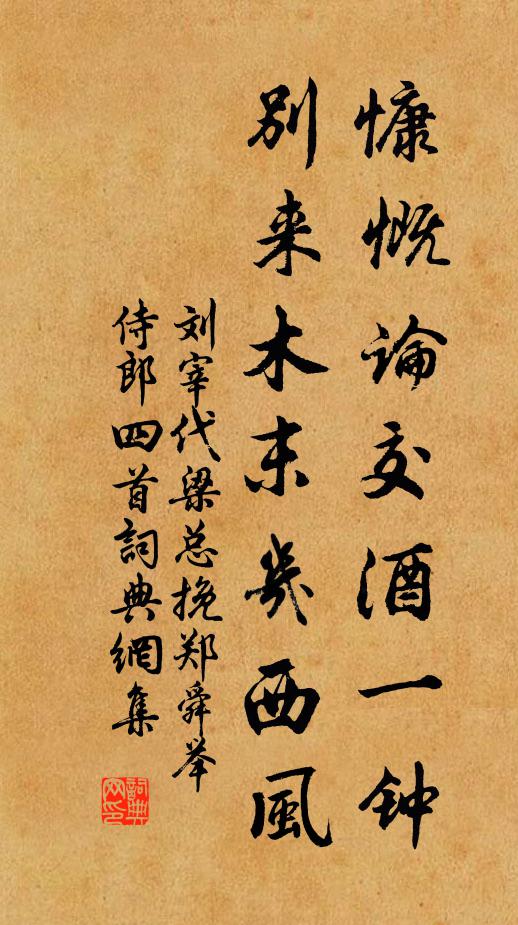 慷慨論交酒一钟
别来木末幾西風
刘宰代梁总挽郑舜举
侍郎四首詞典網集
詞典网印